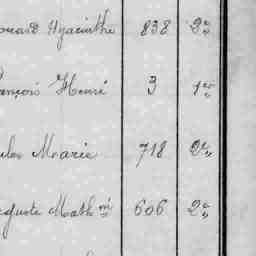 ouard Hyacinthe 838 2e „
ançois Henri 3 1er „
ules Marie 718 2e „
guste Math in 606 2e „